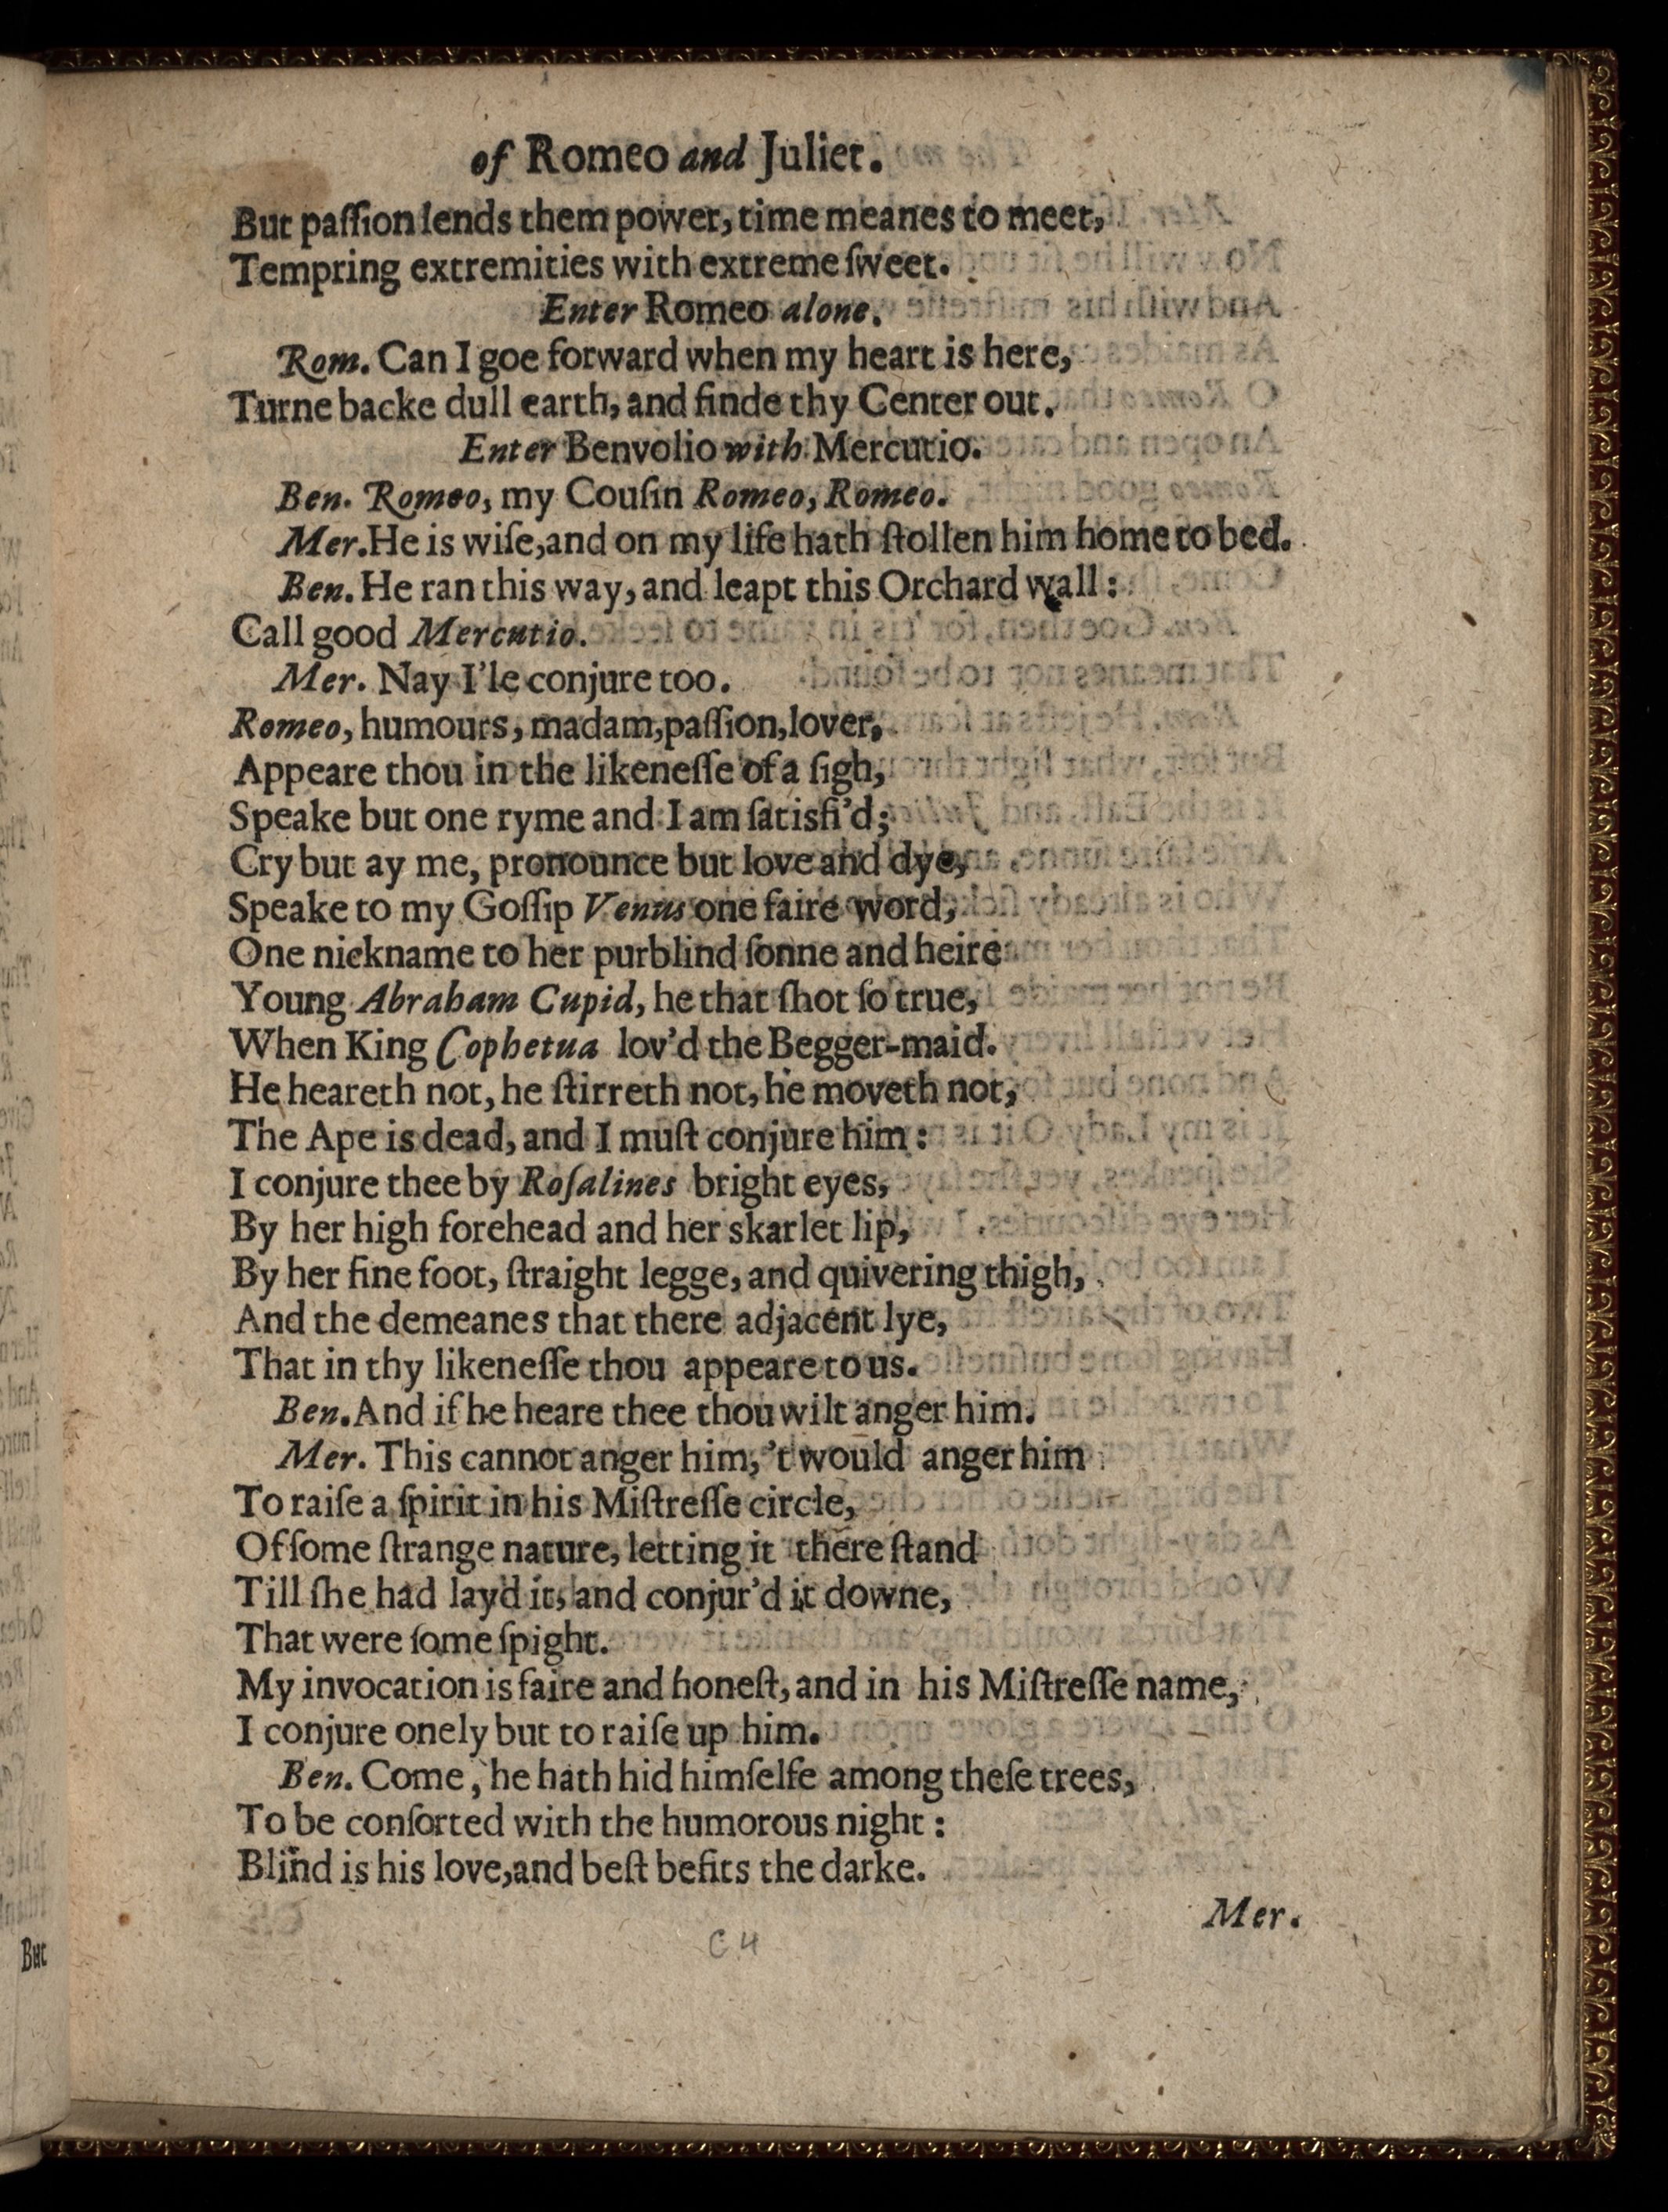 of Romeo and Juliet.
But paſſion lends them power, time meanes to meet,
Tempring extremities with extreme ſweet.
Enter Romeo alone.
Rom. Can I goe forward when my heart is here,
Turne backe dull earth, and finde thy Center out.
Enter Benvolio with Mercutio.
Ben. Romeo, my Couſin Romeo, Romeo.
Mer. He is wiſe, and on my life hath ſtollen him home to bed.
Ben. He ran this way, and leapt this Orchard wall:
Call good Mercutio.
Mer. Nay I'le conjure too.
Romeo, humours, madam, paſſion, lover,
Appeare thou in the likeneſſe of a ſigh,
Speake but one ryme and I am ſatisfi'd;
Cry but ay me, pronounce but love and dye,
Speake to my Goſſip Venus one faire word,
One nickname to her purblind ſonne and heire
Young Abraham Cupid, he that ſhot ſo true,
When King Cophetua lov'd the Begger-maid.
He heareth not, he ſtirreth not, he moveth not,
The Ape is dead, and I muſt conjure him:
I conjure thee by Roſalines bright eyes,
By her high forehead and her skarlet lip,
By her fine foot, ſtraight legge, and quivering thigh,
And the demeanes that there adjacent lye,
That in thy likeneſſe thou appeare to us.
Ben. And if he heare thee thou wilt anger him.
Mer. This cannot anger him, 't would anger him
To raiſe a ſpirit in his Miſtreſſe circle,
Of ſome ſtrange nature, letting it there ſtand
Till ſhe had lay'd it, and conjur'd it downe,
That were ſome ſpight.
My invocation is faire and honeſt, and in his Miſtreſſe name,
I conjure onely but to raiſe up him.
Ben. Come, he hath hid himſelfe among theſe trees,
To be conſorted with the humorous night:
Blind is his love, and beſt befits the darke.
Mer.
C 4
But